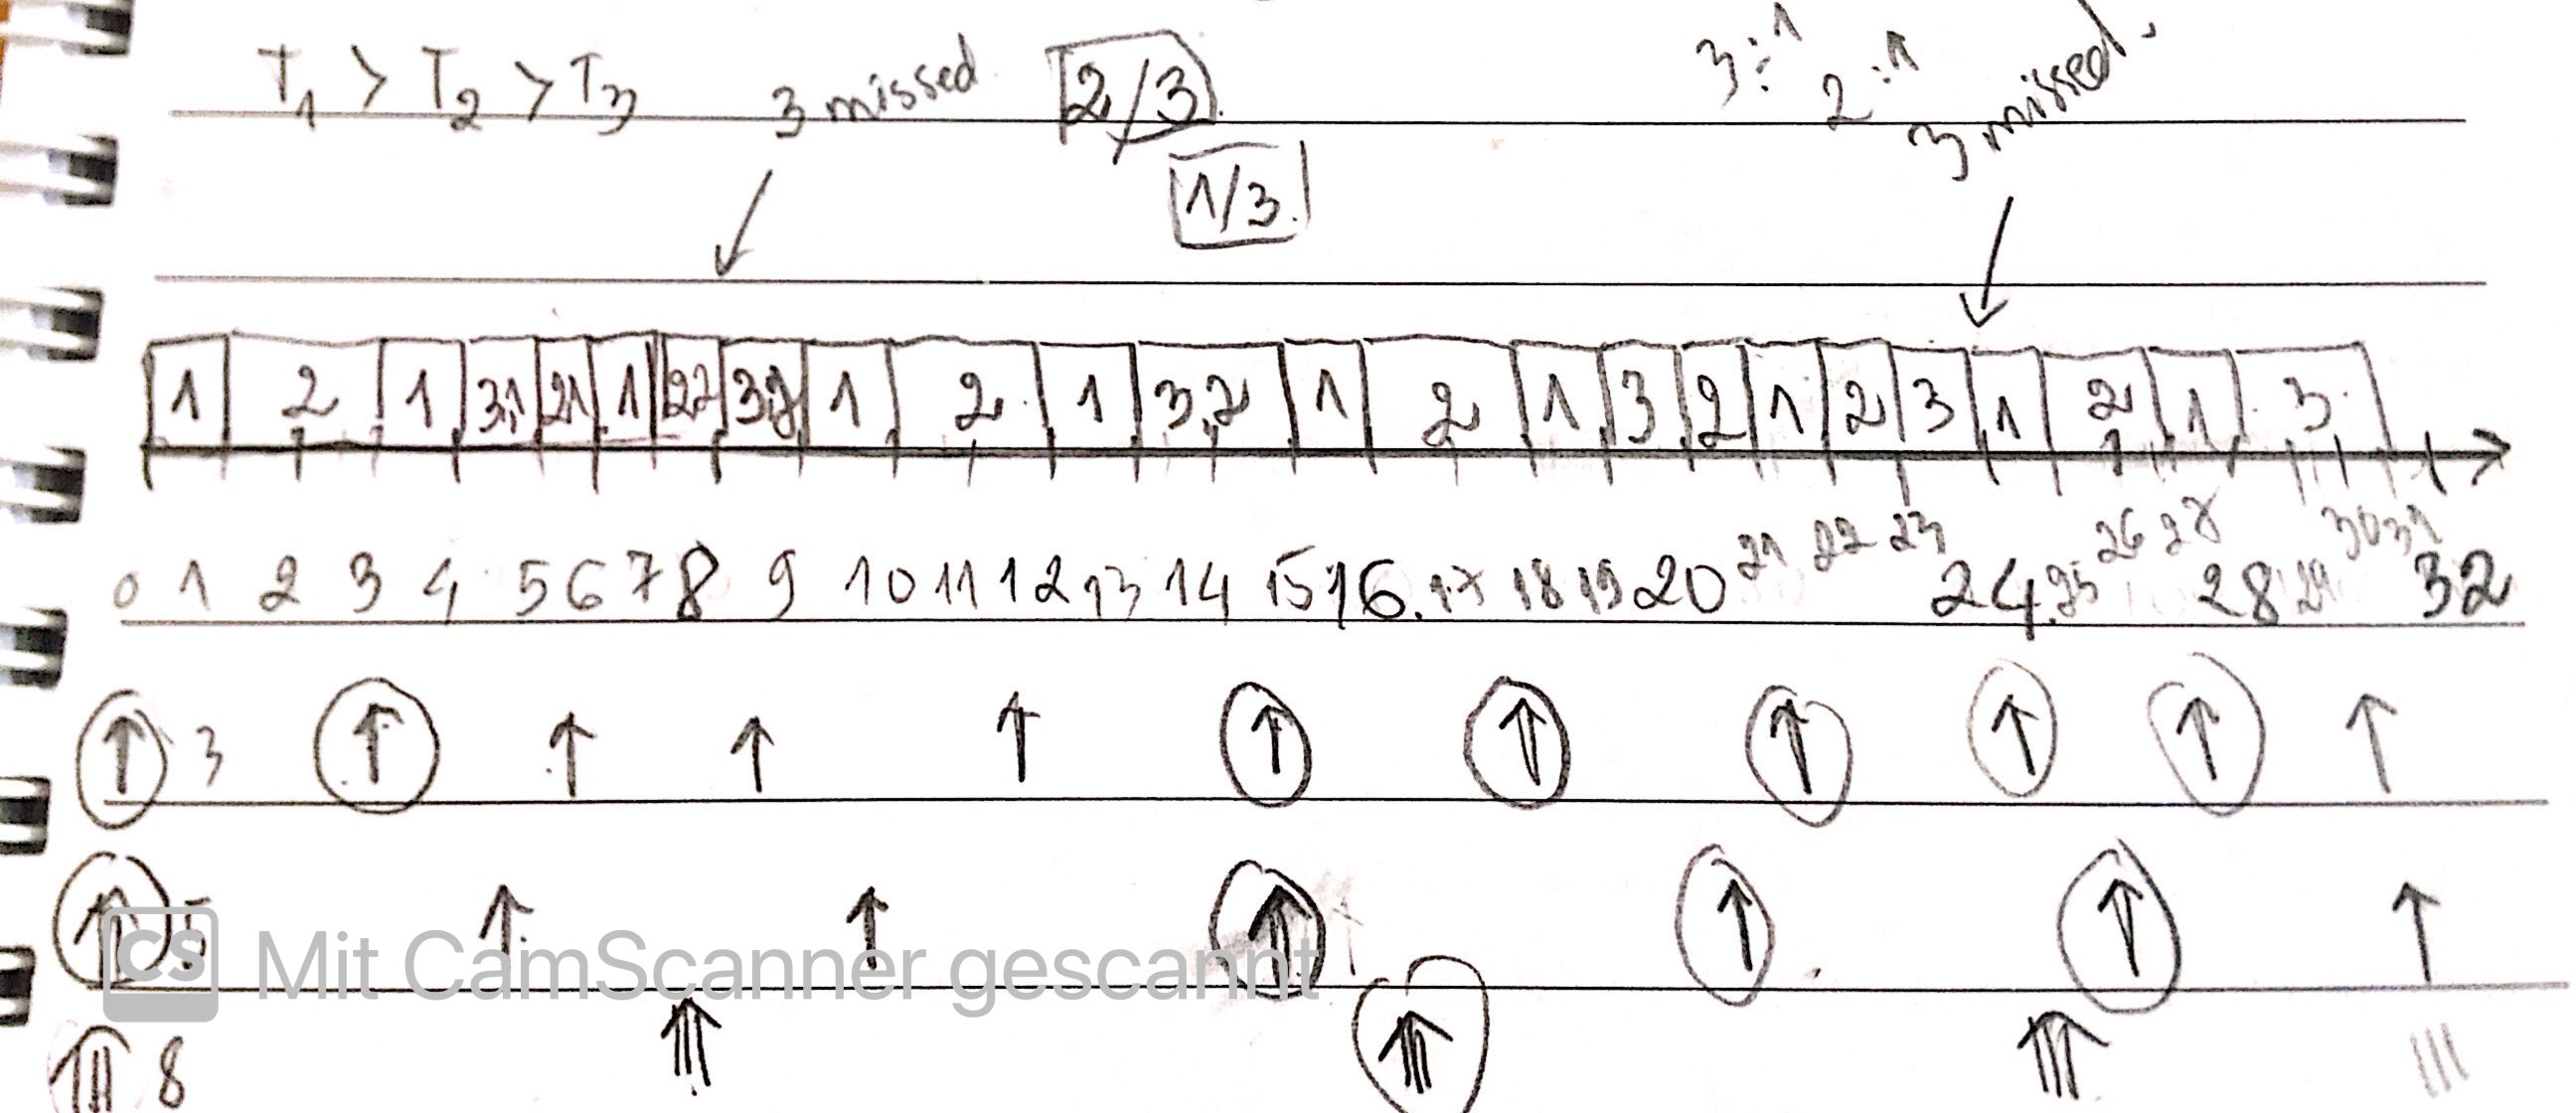 T1 > T2 > T3 3 missed 2/3 3:1 2:1 3 missed.
1/3
1 2 1 3,1 21 1 22 1 2 1 3,2 1 2 1 3 2 1 2 3 1 2 1 3
0 1 2 3 4 5 6 7 8 9 10 11 12 13 14 15 16 17 18 19 20 21 22 23 24 25 26 27 28 29 30 31 32
3
5
CS Mit CamScanner gescannt
8